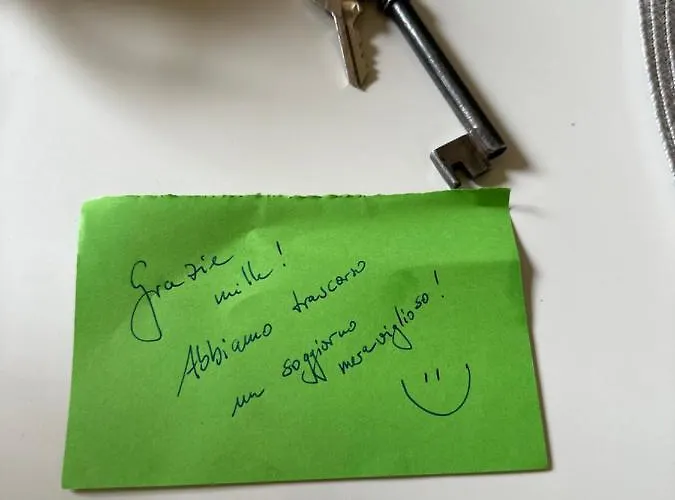 Grazie
mille!
Abbiamo trascorso
un soggiorno
meraviglioso!